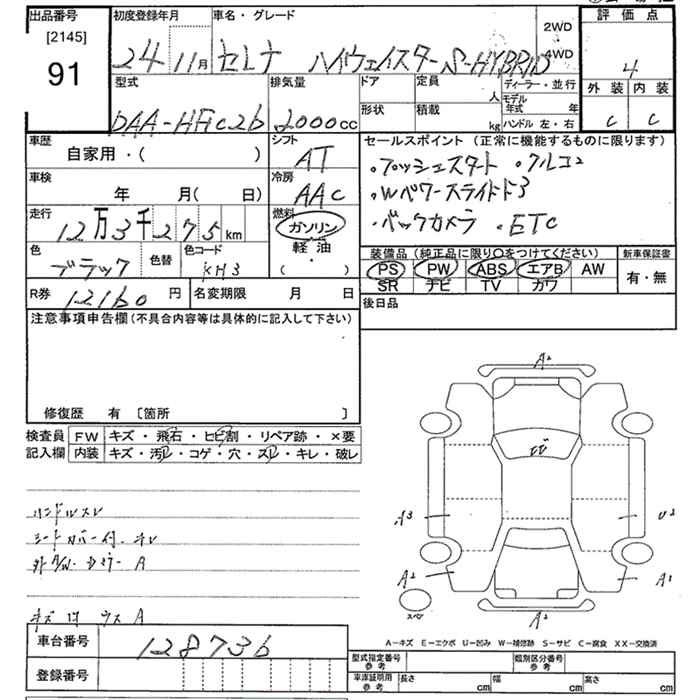 出品番号 初度登録年月 車名・グレード 評価点
[2145]
91
24 11月 セレナ ハイウェイスターS-HYBRID 2WD 4WD 4
型式 排気量 ドア 定員 人 ディーラー・並行 外装 内装
DAA-HFC26 2000cc 形状 積載 kg モデル年式 年 ハンドル 左・右 C C
車歴 シフト セールスポイント (正常に機能するものに限ります)
自家用・( ) AT ・プッシュスタート ・クルコン
車検 冷房 ・Wパワースライドドア
年 月( 日) AAC ・バックカメラ ・ETC
走行 燃料
12万3千275km ガソリン
色 色替 色コード 軽油・( ) 装備品 (純正品に限り○をつけてください) 新車保証書
ブラック KH3 PS PW ABS エアB AW 有・無
SR ナビ TV カワ
R券 12160円 名変期限 月 日 後日品
注意事項申告欄 (不具合内容等は具体的に記入して下さい)
修復歴 有 [箇所 ]
検査員 FW キズ・飛石・ヒビ割・リペア跡・×要
記入欄 内装 キズ・汚レ・コゲ・穴・スレ・キレ・破レ
ハンドルスレ
シートカバー付 キレ
A
キズ 凹 ウス A
A2
ヒビ
A3 U2
A2 A1
スペア
A2
A-キズ E-エクボ U-凹み W-補修跡 S-サビ C-腐食 XX-交換済
車台番号 128736
型式指定番号 参考 類別区分番号 参考
登録番号
車庫証明用 参考 長さ cm 幅 cm 高さ cm